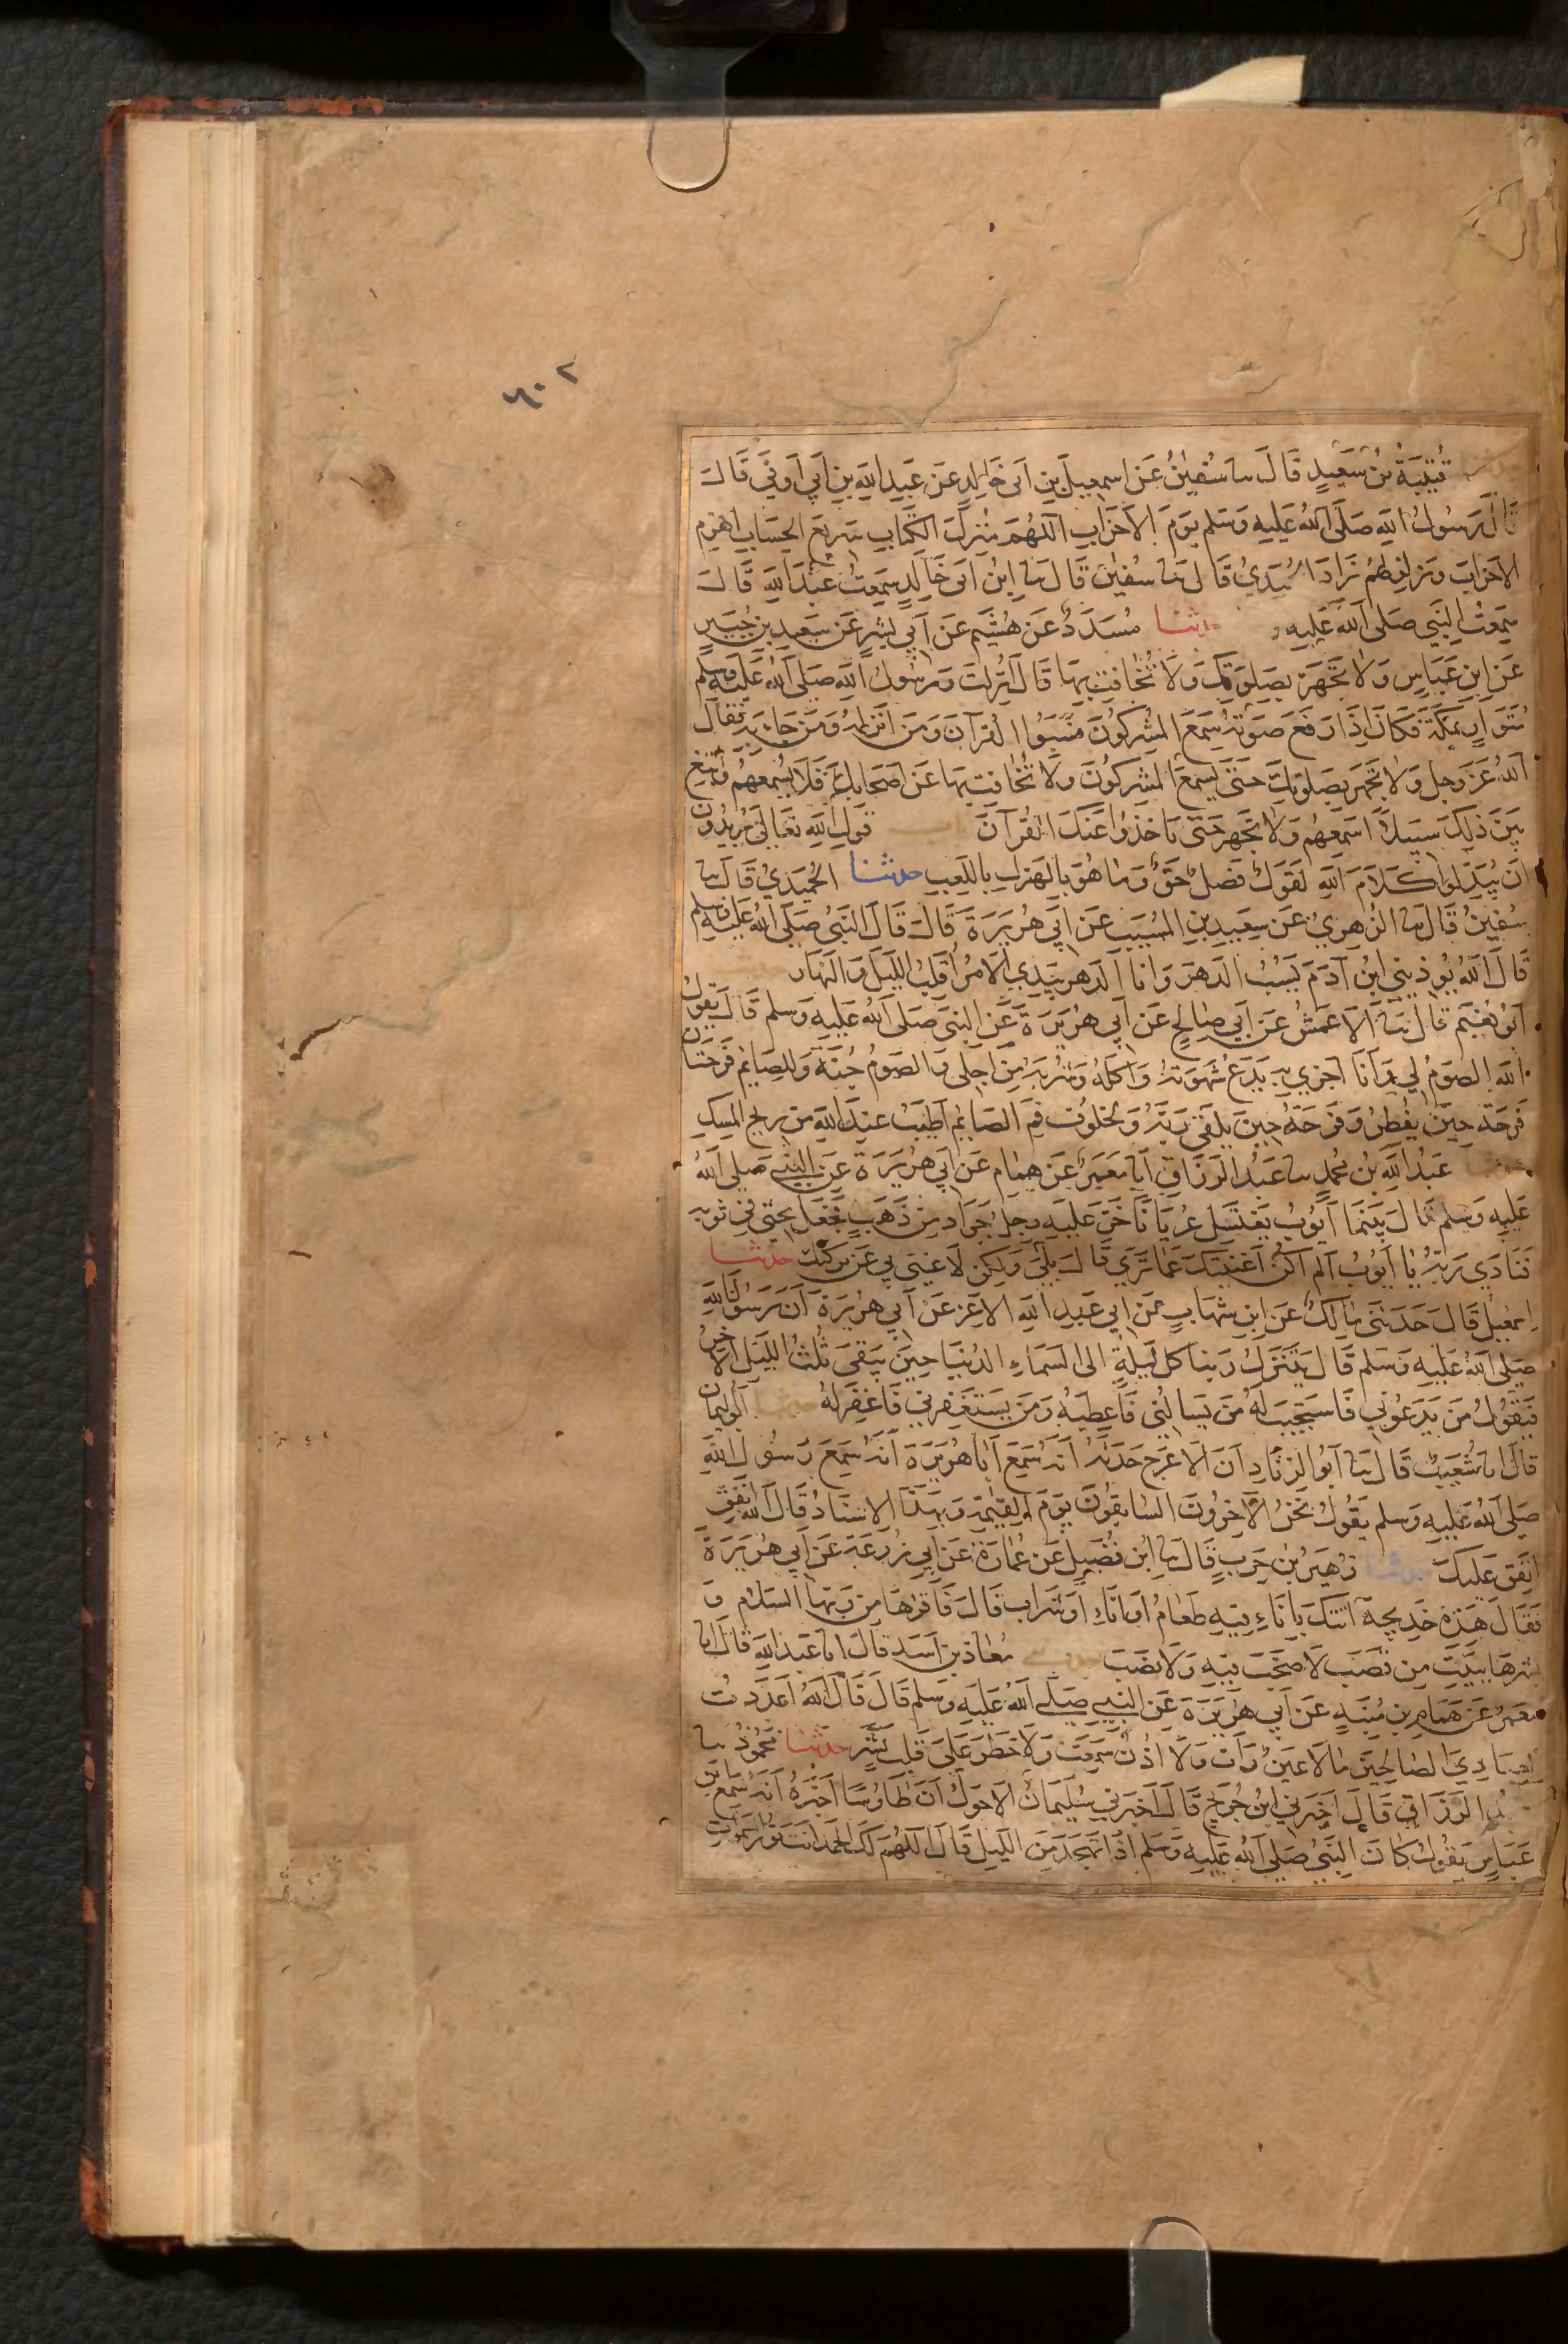 ٦٠٢
قُتَيْبَةُ بْنُ سَعِيدٍ قَالَ نا سُفْينُ عَنْ اسمعيلَ بنِ اَبى خَالِدٍ عَن عَبدِ اللهِ بنِ اَبي اَوفي قَالَ
قَالَ رَسُولُ اللهِ صَلَّى اللهُ عَلَيهِ وَسَلم يَومَ الاَحزَابِ اَللهُمَ مُنزِلَ الكِتَابِ سَريعَ الحِسَابِ اهزِم
الاَحزَابَ وَزَلزِلهُمْ زَادَ الحُمَيدِيُ قَالَ نا سُفين قَالَ نا اِبنُ اَبى خَالِدٍ سَمِعتُ عَبدَ اللهِ قَالَ
سَمِعتُ النَبِي صَلى اللهُ عَلَيهِ وَ حدثنا مُسَدَدٌ عَن هُشَيم عَن اَبي بِشرٍ عَن سَعِيدِ بنِ جُبَيرٍ
عَن ابنِ عَبَاسٍ وَلا تَجْهَر بِصَلوتِكَ وَلا تُخَافِت بِهَا قَالَ اُنزِلت وَرَسُولُ اللهِ صَلى اللهُ عَلَيهِ وَسلم
مُتَوَارٍ بِمَكَّةَ فَكَانَ اِذَا رَفَعَ صَوتَهُ سَمِعَ المُشرِكُونَ فَسَبُّوا القُرآنَ وَمَن اَنزَلهُ وَمَن جَاءَ بِهِ فَقَالَ
اللهُ عَزَ وَجل وَلا تَجهَر بِصَلوتِكَ حَتَى يَسمَعَ المُشرِكُونَ ولا تُخَافِت بِهَا عَن اَصحَابِكَ فَلا تُسمِعهُم وَابتَغِ
بَينَ ذَلِكَ سَبِيلاً اَسمِعهُم وَلا تَجهَر حَتَى يَاخُذُوا عَنكَ القُرآنَ قَولِ اللهِ تَعَالى يُرِيدُونَ
اَن يُبَدِّلُوا كَلَامَ اللهِ لَقَولٌ فَصلٌ حَقٌ وَمَا هُوَ بِالهَزلِ بِاللَعِبِ حدثنا الحُمَيدِيُ قَالَ نا
سُفينُ قَالَ نا الزُهرِيُ عَن سَعِيدِ بنِ المُسَيَبِ عَن اَبِي هُرَيرَةَ قَالَ قَالَ النَبِيُ صَلى اللهُ عَلَيهِ وَسلم
قَالَ اللهُ يُوذِينِي ابنُ آدَمَ يَسُبُ الدَهرَ وَانَا الدَهر بِيَدِي الاَمرُ اُقَلِبُ اللَيلَ وَالنَهَارَ
اَبُو نُعَيم قَالَ نا الاَعمَشُ عَن اَبِي صَالِحٍ عَن اَبِي هُرَيرَةَ عَنِ النَبِي صَلى اللهُ عَلَيهِ وَسَلم قَالَ يَقُولُ
اللهُ الصَومُ لِي وَاَنَا اَجزِي بِهِ يَدَعُ شَهوَتَهُ وَاَكلَهُ وَشُربَهُ مِن اَجلِي وَالصَومُ جُنَةٌ وَلِلصَايِمِ فَرحَتَانِ
فَرحَةٌ حِينَ يُفطِرُ وَفَرحَةٌ حِينَ يَلقَى رَبَّهُ وَلَخلُوفُ فَمِ الصَايِمِ اَطيَبُ عِندَ اللهِ مِن رِيحِ المِسكِ
عَبدُ اللهِ بنُ مُحمدٍ نا عَبدُ الرَزَاقِ اَنا مَعمَرٌ عَن همَامٍ عَن اَبِي هُرَيرَةَ عَنِ النَبِيِّ صَلى اللهُ
عَلَيهِ وَسَلم قَالَ بَينَمَا اَيُّوبُ يَغتَسِلُ عُريَانًا خَرَّ عَلَيهِ رِجلُ جَرَادٍ مِن ذَهَبٍ فَجَعَلَ يَحثِي فِي ثَوبِهِ
فَنَادَى رَبُّهُ يَا اَيُوبُ اَلَم اَكُن اَغنَيتُكَ عَمَا تَرَي قَالَ بَلَى وَلَكِن لا غِنَى بِي عَن بَرَكَتِكَ حدثنا
اِسمعِيلُ قَالَ حَدَثَنِي مَالِكٌ عَنِ ابنِ شِهَابٍ عَن اَبِي عَبدِ اللهِ الاَغَرِ عَن اَبِي هُرَيرَةَ اَنَّ رَسُولَ اللهِ
صَلى اللهُ عَلَيهِ وَسَلم قَالَ يَتَنَزَّلُ رَبُنَا كُل لَيلَةٍ الى السَمَاءِ الدُنيَا حِينَ يَبقَى ثُلُثُ اللَيلِ الآخِرُ
فَيَقُولُ مَن يَدعُونِي فَاَستَجِيبَ لَهُ مَن يَسالُنِي فَاُعطِيَهُ وَمَن يَستَغفِرُنِي فَاَغفِرَ لَهُ اَبُو اليمَان
قَالَ انا شُعَيبٌ قَالَ نا اَبُو الزِنَادِ اَنَّ الاَعرَجَ حَدَثَهُ اَنَهُ سَمِعَ اَبَا هُرَيرَةَ اَنَهُ سَمِعَ رَسُولَ اللهِ
صَلى اللهُ عَلَيهِ وَسلم يَقُولُ نَحنُ الآخِرُونَ السَابِقُونَ يَومَ القِيمَةِ وَبِهَذَا الاسنَادِ قَالَ اللهُ اَنفِق
اُنفِق عَلَيكَ حدثنا زُهَيرُ بنُ حَربٍ قَالَ نا ابنُ فُضَيلٍ عَن عُمَارَةَ عَن اَبِي زُرعَةَ عَن اَبِي هُرَيرَةَ
فَقَالَ هَذِهِ خَدِيجَةُ اَتَتكَ بِانَاءٍ فِيهِ طَعَامٌ اَو اِنَاءٍ اَو شَرَابٍ قَالَ فَاَقرِاهَا مِن رَبِّهَا السَلامَ وَ
بَشِّرهَا بِبَيتٍ مِن قَصَبٍ لا صَخَبَ فِيهِ وَلا نَصَبَ مُعَاذ بن اَسَدٍ قَالَ انا عَبدُ اللهِ قَالَ انا
مَعمَرٌ عَن هَمَامِ بنِ مُنَبِهٍ عَن اَبِي هُرَيرَةَ عَنِ النَبِيِّ صَلى اللهُ عَلَيهِ وَسلم قَالَ قَالَ اللهُ اَعدَدتُ
لِعِبَادِيَ الصَالِحِينَ مَا لا عَينٌ رَأَت وَلا اُذُنٌ سَمِعَت وَلا خَطَرَ عَلَى قَلبِ بَشَرٍ حدثنا مَحمُودٌ نا
عَبدُ الرَزَاقِ قَالَ اَخبَرَنِي ابنُ جُرَيجٍ قَالَ اَخبَرَنِي سُلَيمَانُ الاَحوَلُ اَنَّ طَاوُسًا اَخبَرَهُ اَنَهُ سَمِعَ ابنَ
عَبَاسٍ يَقُولُ كَانَ النَبِيُ صَلى اللهُ عَلَيهِ وَسَلم اِذَا تَهَجَدَ مِنَ اللَيلِ قَالَ اللهُمَ لَكَ الحَمدُ اَنتَ نُورُ السَمَوَاتِ